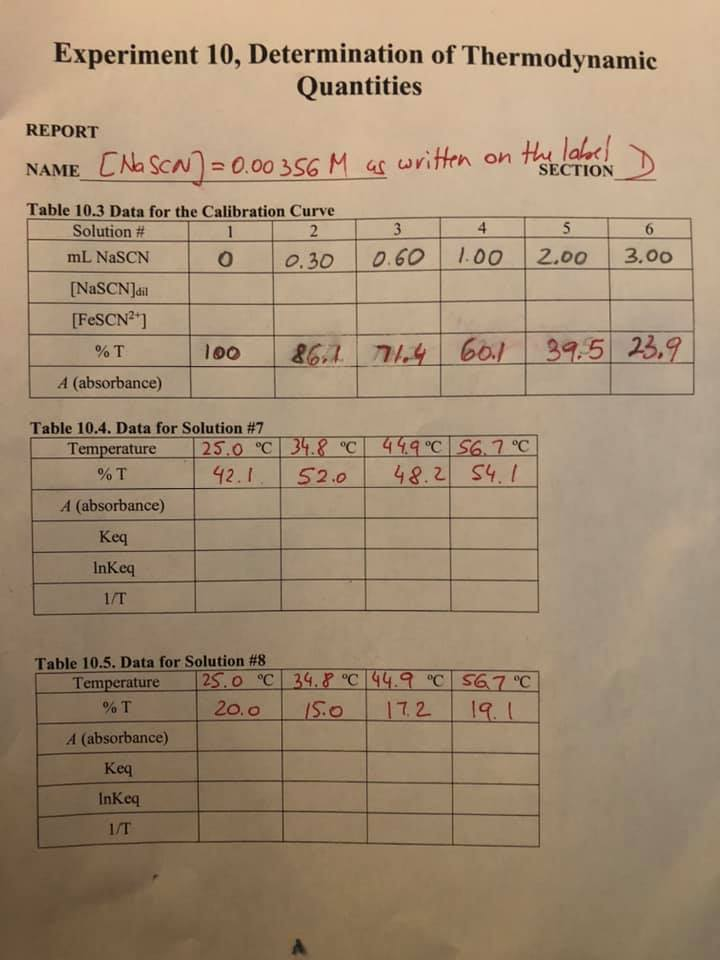 Experiment 10, Determination of Thermodynamic
Quantities
REPORT
NAME [NaSCN] = 0.00356 M as written on the label SECTION D
Table 10.3 Data for the Calibration Curve
Solution # 1 2 3 4 5 6
mL NaSCN 0 0.30 0.60 1.00 2.00 3.00
[NaSCN]dil
[FeSCN²⁺]
% T 100 86.1 71.4 60.1 39.5 23.9
A (absorbance)
Table 10.4. Data for Solution #7
Temperature 25.0 °C 34.8 °C 44.9 °C 56.7 °C
% T 42.1 52.0 48.2 54.1
A (absorbance)
Keq
lnKeq
1/T
Table 10.5. Data for Solution #8
Temperature 25.0 °C 34.8 °C 44.9 °C 56.7 °C
% T 20.0 15.0 17.2 19.1
A (absorbance)
Keq
lnKeq
1/T
A